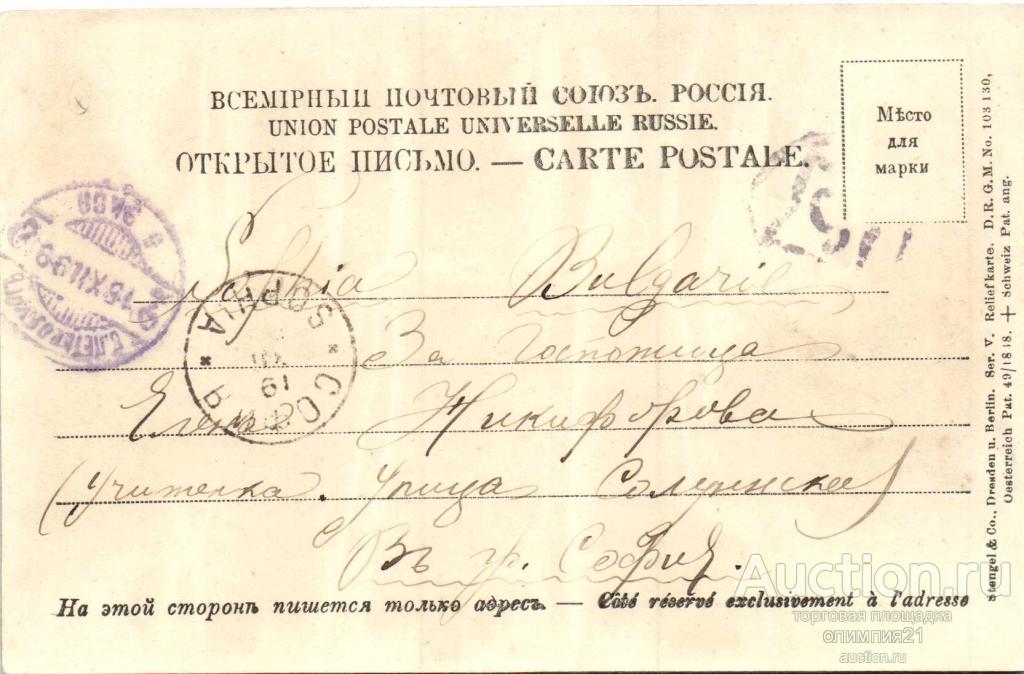 ВСЕМІРНЫЙ ПОЧТОВЫЙ СОЮЗЪ. РОССІЯ.
UNION POSTALE UNIVERSELLE RUSSIE.
ОТКРЫТОЕ ПИСЬМО. — CARTE POSTALE.
Мѣсто
для
марки
Sofia Bulgarie
За Госпожица
Елена Никифорова
(Учителка. Улица Солунска)
Въ гр. София.
СОФИЯ
19
XII
На этой сторонѣ пишется только адресъ. — Côté réservé exclusivement à l'adresse
Stengel & Co., Dresden u. Berlin. Ser. V. Reliefkarte. D. R. G. M. No. 103130,
Oesterreich Pat. 49/1838. + Schweiz Pat. ang.
Auction.ru
торговая площадка
олимпия21
auction.ru